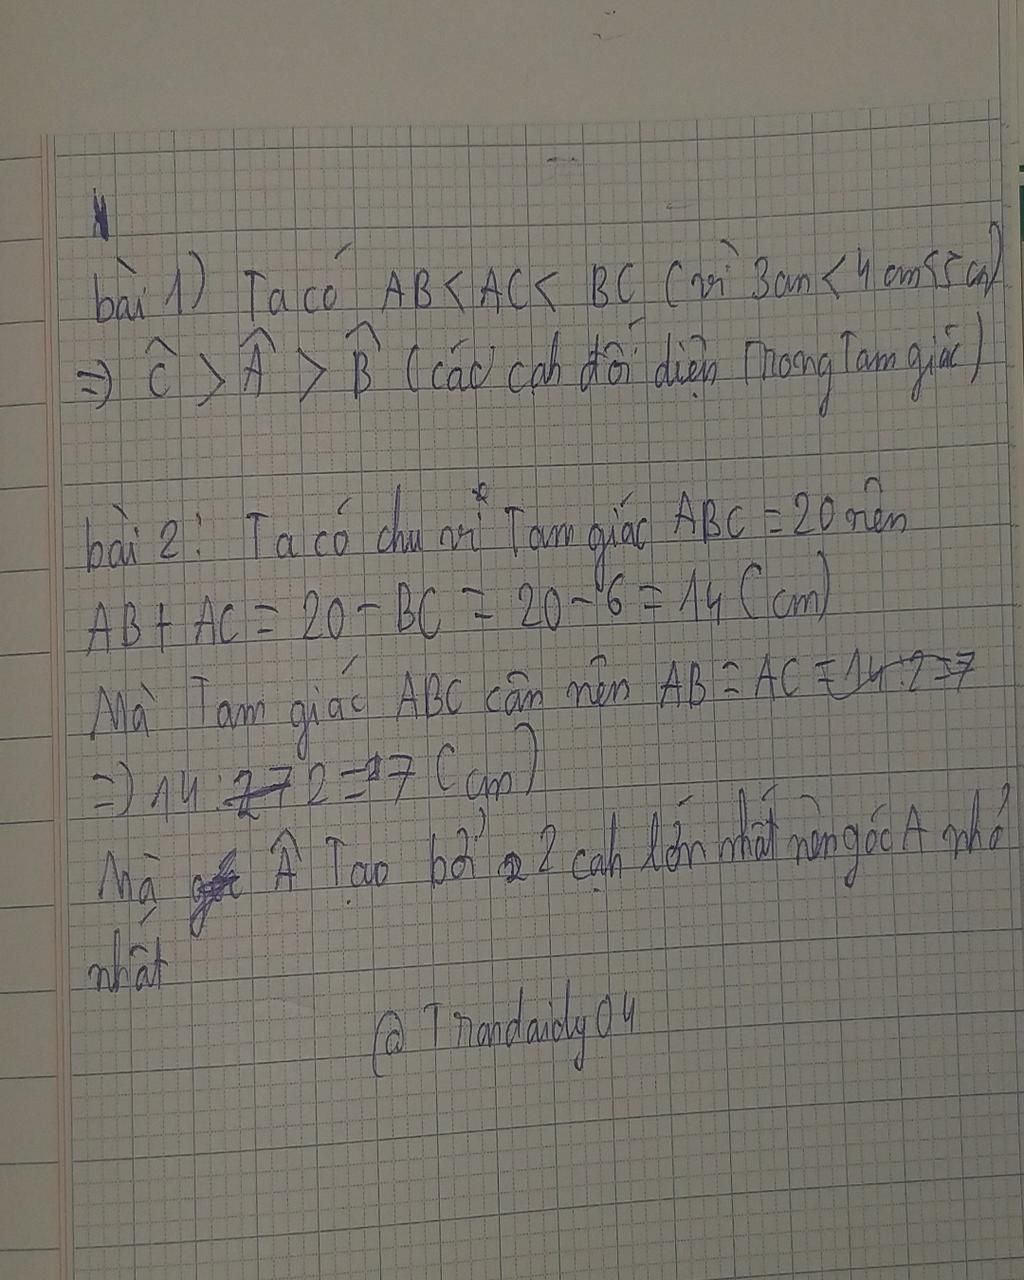 bài 1) Ta có AB < AC < BC (vì 3cm < 4cm < 5cm)
=> Ĉ > Â > B̂ (các cạh đối diện Trong Tam giác)
bài 2: Ta có chu vi Tam giác ABC = 20 nên
AB + AC = 20 - BC = 20 - 6 = 14 (cm)
Mà Tam giác ABC cân nên AB = AC = 14:2=7
=> 14 : 2 = 7 (cm)
Mà Â Tạo bởi 2 cạh lớn nhất nên góc A nhỏ
nhất
@Trandaidy04